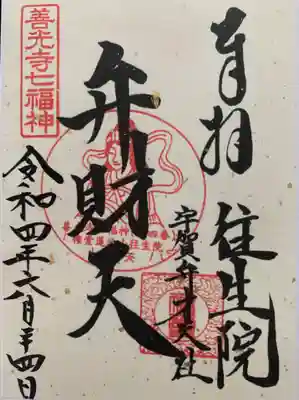 奉拝
往生院
宇賀弁才天社
弁財天
善光寺七福神
令和四年六月二十四日